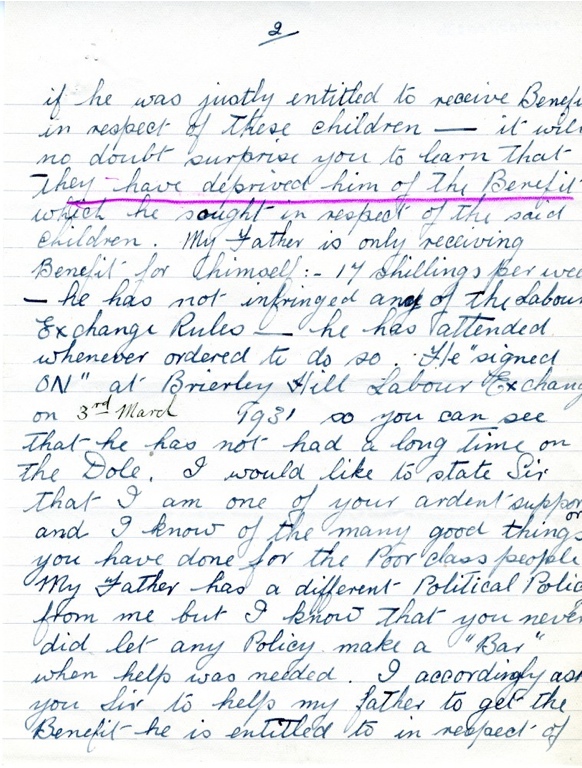 2
if he was justly entitled to receive Benefi
in respect of these children — it will
no doubt surprise you to learn that
they have deprived him of the Benefit
which he sought in respect of the said
children. My Father is only receiving
Benefit for himself :- 17 shillings per wee
— he has not infringed any of the Labour
Exchange Rules — he has attended
whenever ordered to do so. He "signed
ON" at Brierley Hill Labour Exchang
on 3rd March 1931 so you can see
that he has not had a long time on
the Dole. I would like to state Sir
that I am one of your ardent suppor
or
and I know of the many good things
you have done for the Poor class people
My Father has a different Political Polic
from me but I know that you never
did let any Policy make a "Bar"
when help was needed. I accordingly ask
you Sir to help my father to get the
Benefit he is entitled to in respect of